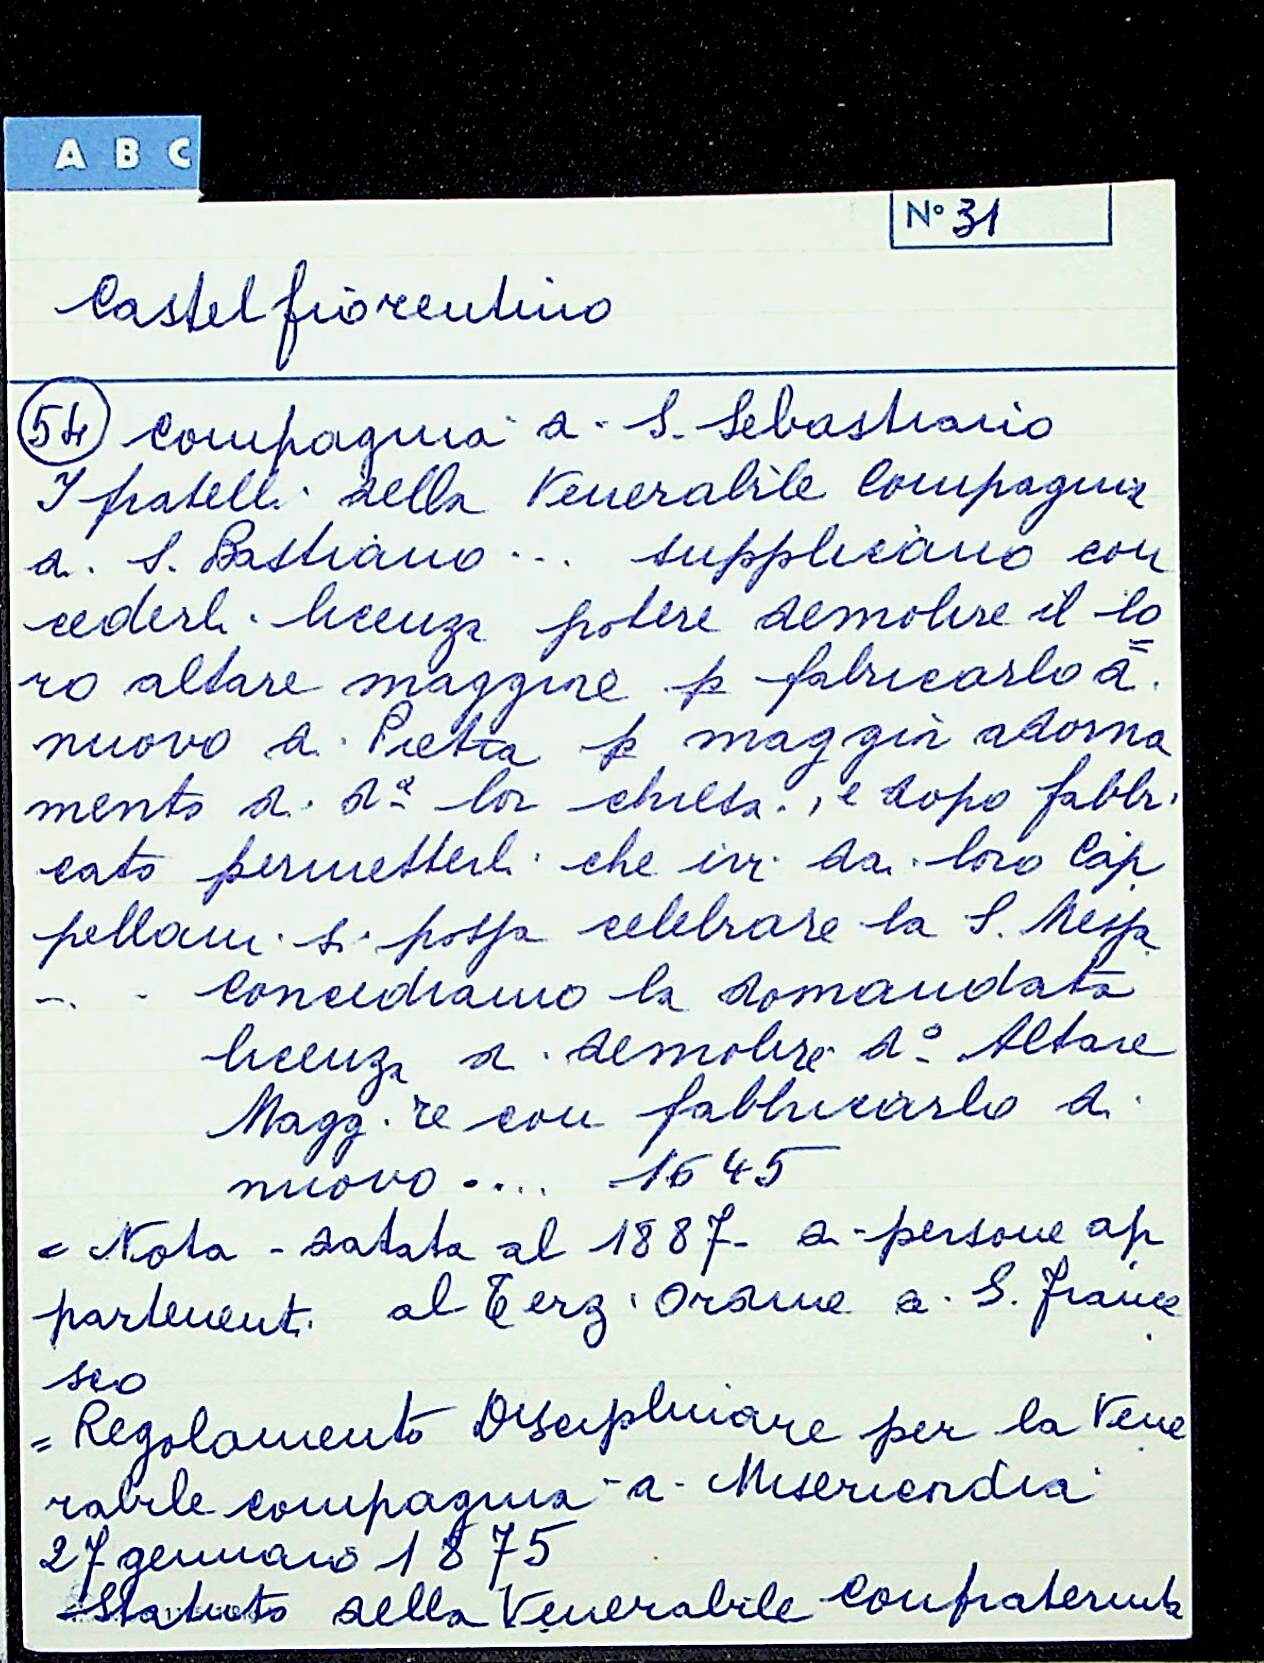 A B C
N° 31
Castelfiorentino
54 Compagnia di S. Sebastiano
I fratelli della Venerabile Compagnia
di S. Bastiano ... supplicano con
cederli licenza potere demolire il lo=
ro altare maggiore p fabricarlo di
nuovo di Pietra p maggior adorna
mento di dª lor chiesa, e dopo fabbri
cato permetterli che ivi dai loro Cap
pellani si possa celebrare la S. Messa
... Concediamo la domandata
licenza di demolire d° Altare
Magg.re con fabbricarlo di
nuovo .... 1645
= Nota - datata al 1887 - di persone ap
partenenti al Terz. Ordine di S. France
sco
= Regolamento Disciplinare per la Vene
rabile compagnia di Misericordia
27 gennaio 1875
= Statuto della Venerabile Confraternita